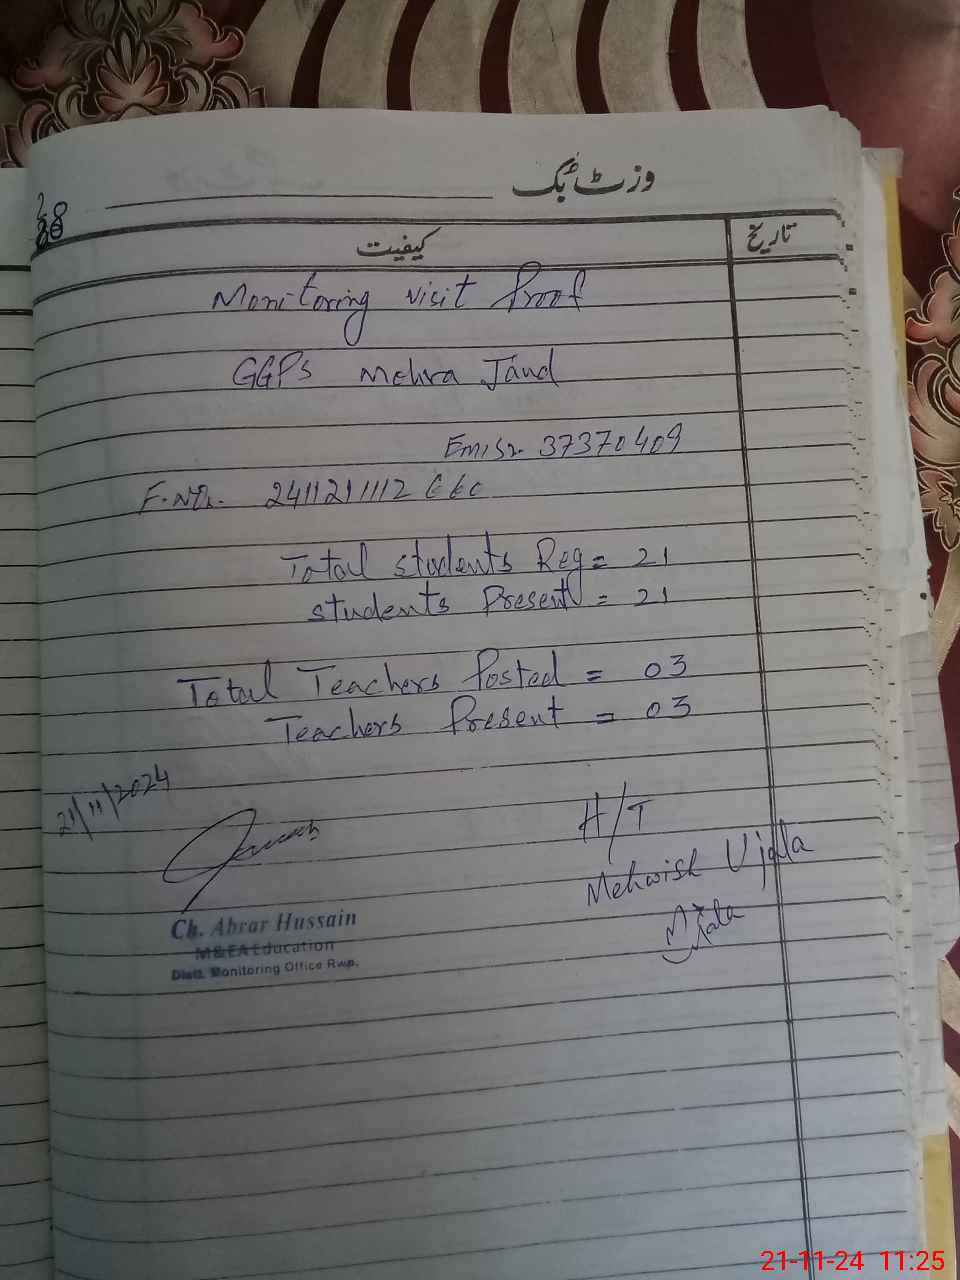 وزٹ بُک
28
کیفیت
تاریخ
Monitoring visit Proof
GGPS Mehra Jand
Emis 37370409
F. 2411211112
Total students Reg = 21
students Present = 21
Total Teachers Posted = 03
Teachers Present = 03
21/11/2024
H/T
Mehwish Ujala
Ch. Abrar Hussain
M&EA Education
Distt. Monitoring Office Rwp.
21-11-24 11:25